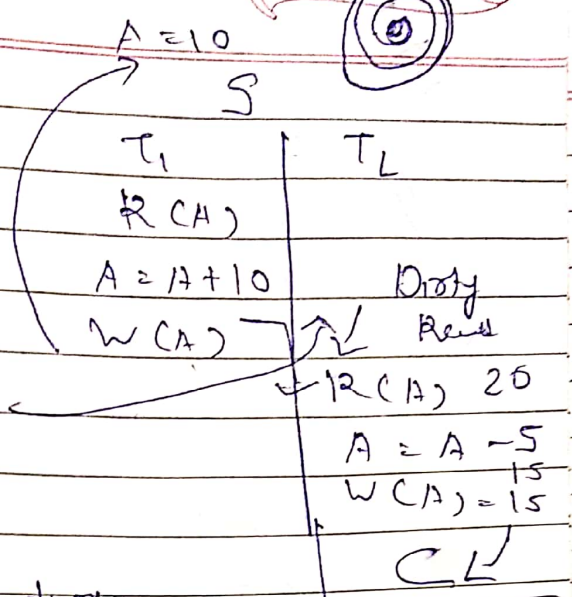 A = 10
S
T1 T2
R(A)
A = A + 10 Dirty
W(A) Read
R(A) 20
A = A - 5
15
W(A) = 15
C